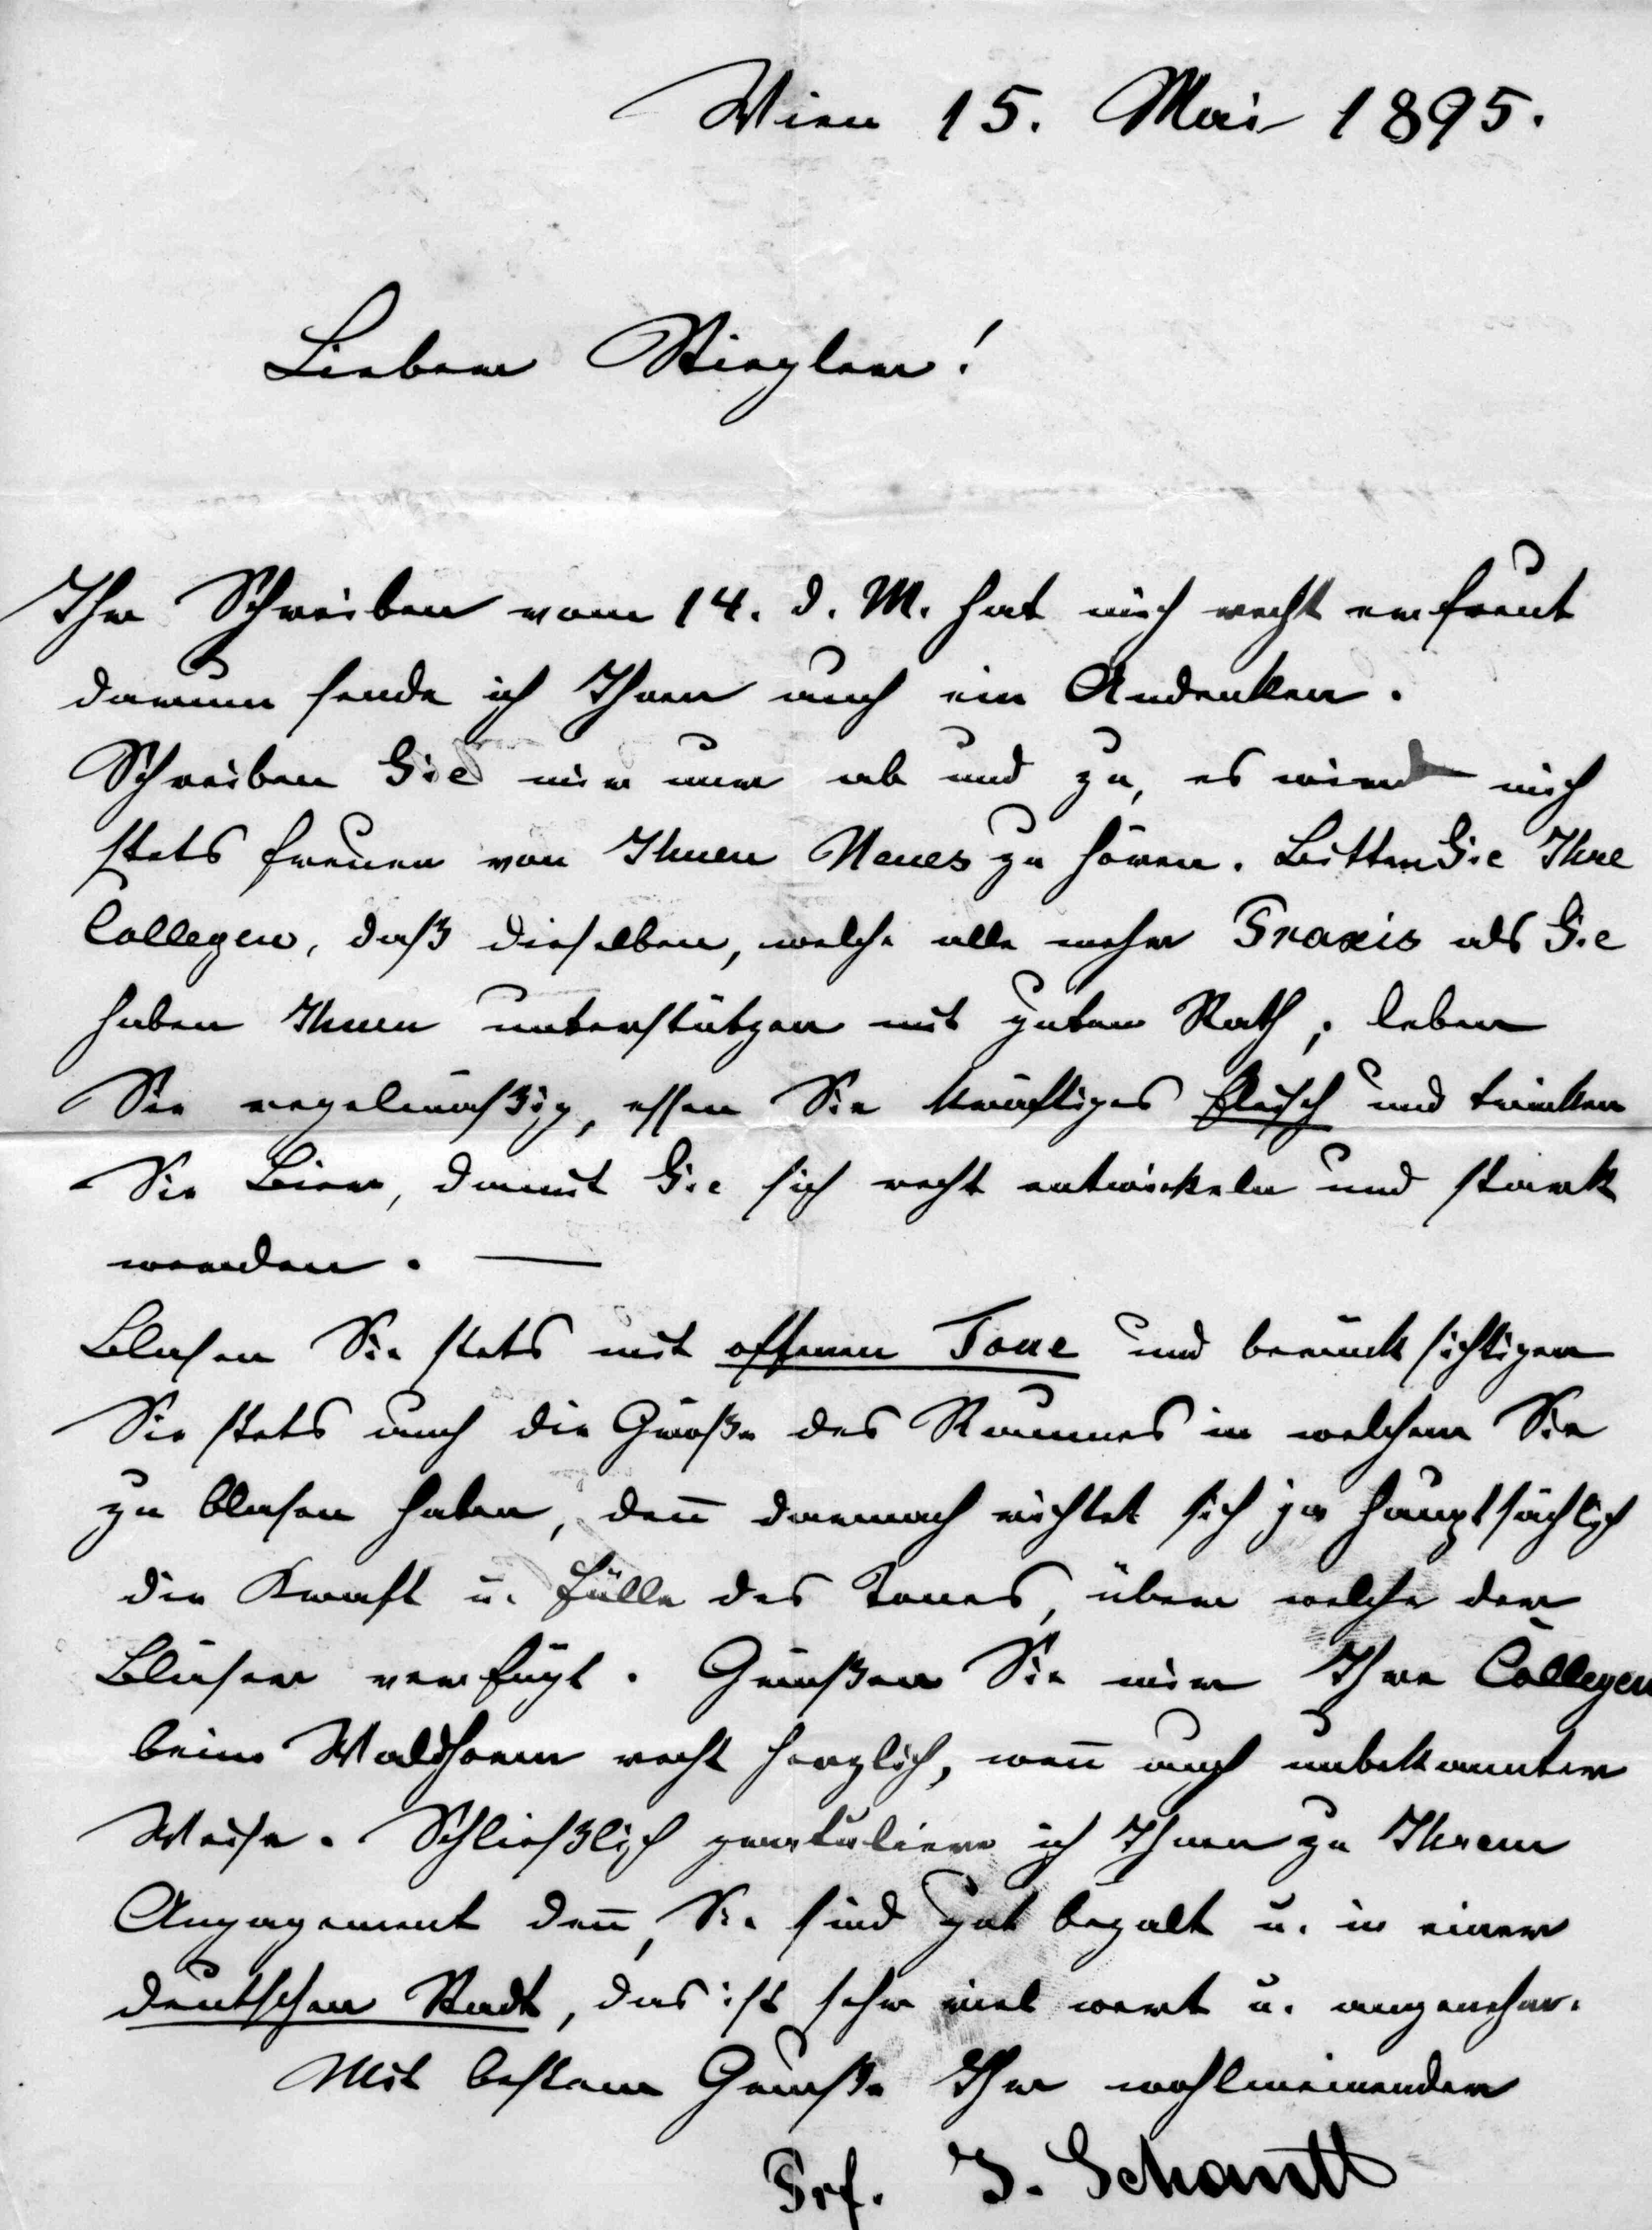 Wien 15. Mai 1895.
Lieber Stiegler!
Ihr Schreiben vom 14. d. M. hat mich recht erfreut
darum sende ich Ihnen auch ein Andenken.
Schreiben Sie mir nur ab und zu, es wird mich
stets freuen von Ihnen Neues zu hören. Bitten Sie Ihre
Collegen, daß dieselben, welche alle mehr Praxis als Sie
haben Ihnen unterstützen mit gutem Rath; leben
Sie regelmäßig, essen Sie kräftiges Fleisch und trinken
Sie Bier, damit Sie sich recht entwickeln und stark
werden. —
Blasen Sie stets mit offenen Tone und berücksichtigen
Sie stets auch die Größe des Raumes in welchem Sie
zu blasen haben, den̅ darnach richtet sich ja hauptsächlich
die Kraft u. Fülle des Tones, über welche der
Bläser verfügt. Grüßen Sie mir Ihre Collegen
beim Waldhorn recht herzlich, wen̅ auch unbekannter
Weise. Schließlich gratuliere ich Ihnen zu Ihrem
Angagement den̅, Sie sind gut bezalt u. in einer
deutschen Stadt, das ist sehr viel wert u. angenehm.
Mit bestem Gruße Ihr wohlmeinender
Prf. J. Schantl